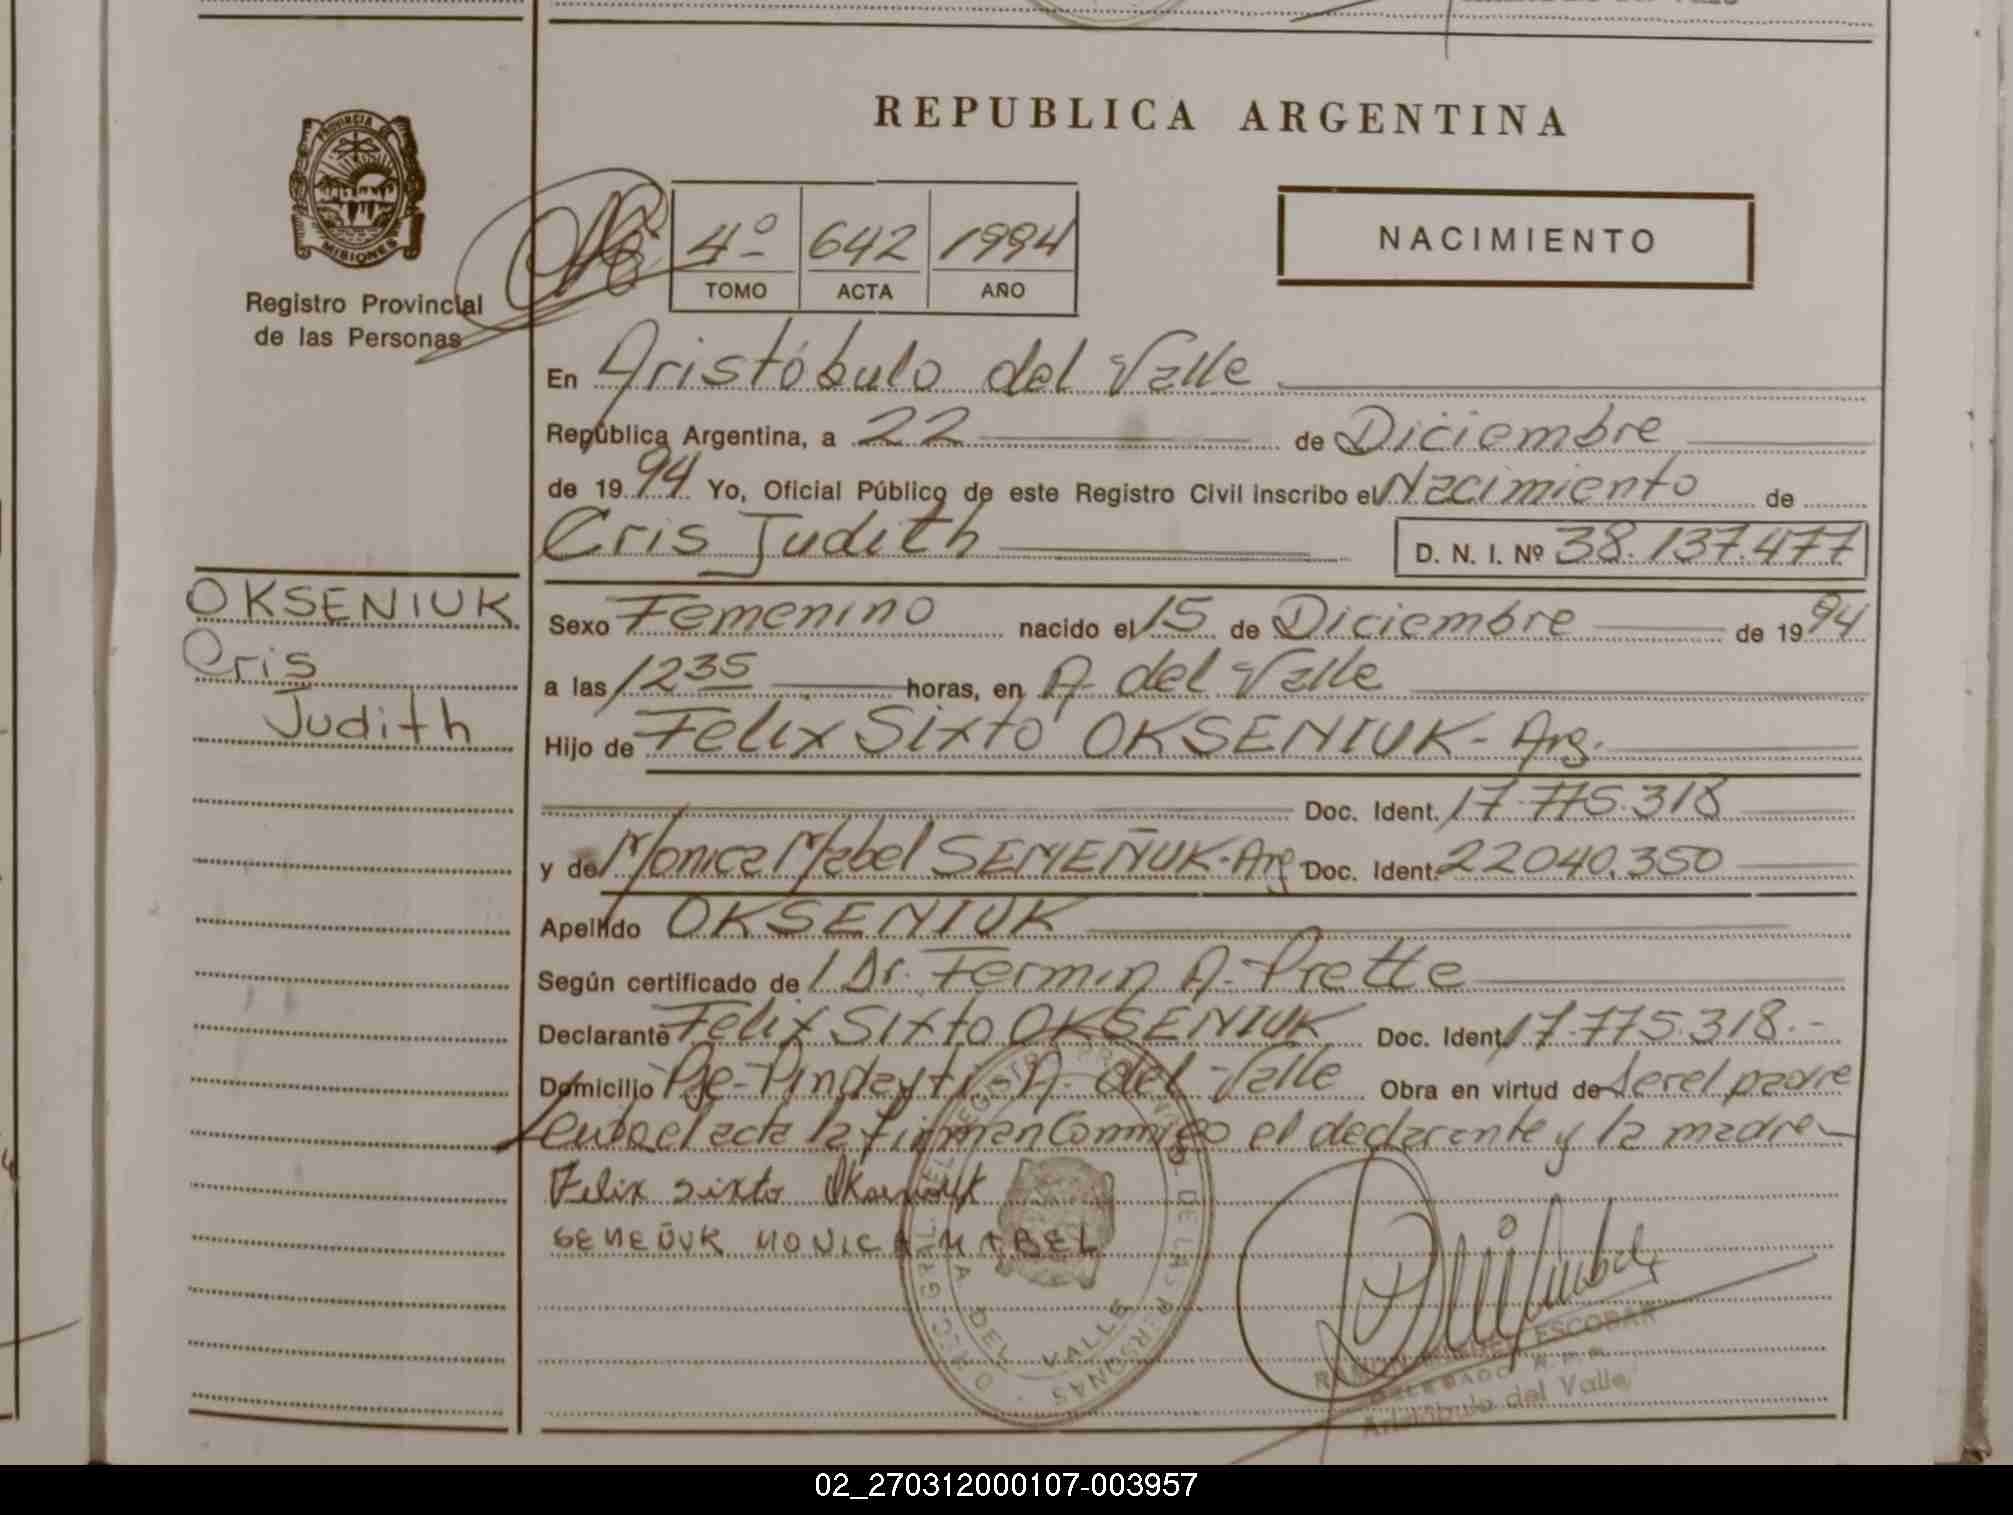 REPUBLICA ARGENTINA
PROVINCIA DE
MISIONES
Registro Provincial
de las Personas
4º 642 1994
TOMO ACTA AÑO
NACIMIENTO
En Aristóbulo del Valle
República Argentina, a 22 de Diciembre
de 1994 Yo, Oficial Público de este Registro Civil inscribo el Nacimiento de
Cris Judith D. N. I. Nº 38.137.477
OKSENIUK
Cris
Judith
Sexo Femenino nacido el 15 de Diciembre de 1994
a las 1235 horas, en A. del Valle
Hijo de Felix Sixto OKSENIUK - Arg.
Doc. Ident. 17.775.318
y de Monica Mabel SEMEÑUK - Arg Doc. Ident. 22040.350
Apellido OKSENIUK
Según certificado de / Dr. Fermin A. Prette
Declarante Felix Sixto OKSENIUK Doc. Ident. 17.775.318.-
Domicilio Pje- Pindayti - A. del Valle Obra en virtud de ser el padre
Leida el acta la firman Conmigo el declarante y la madre
Felix sixto Okseniuk
SEMEÑUK MONICA MABEL
REGISTRO PROVINCIAL DE LAS PERSONAS
DEL VALLE
RAMON ESCOBAR
DELEGADO
Aristóbulo del Valle
02_270312000107-003957